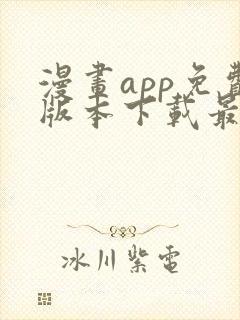 漫畫app免費
版本下載最
冰川紫電